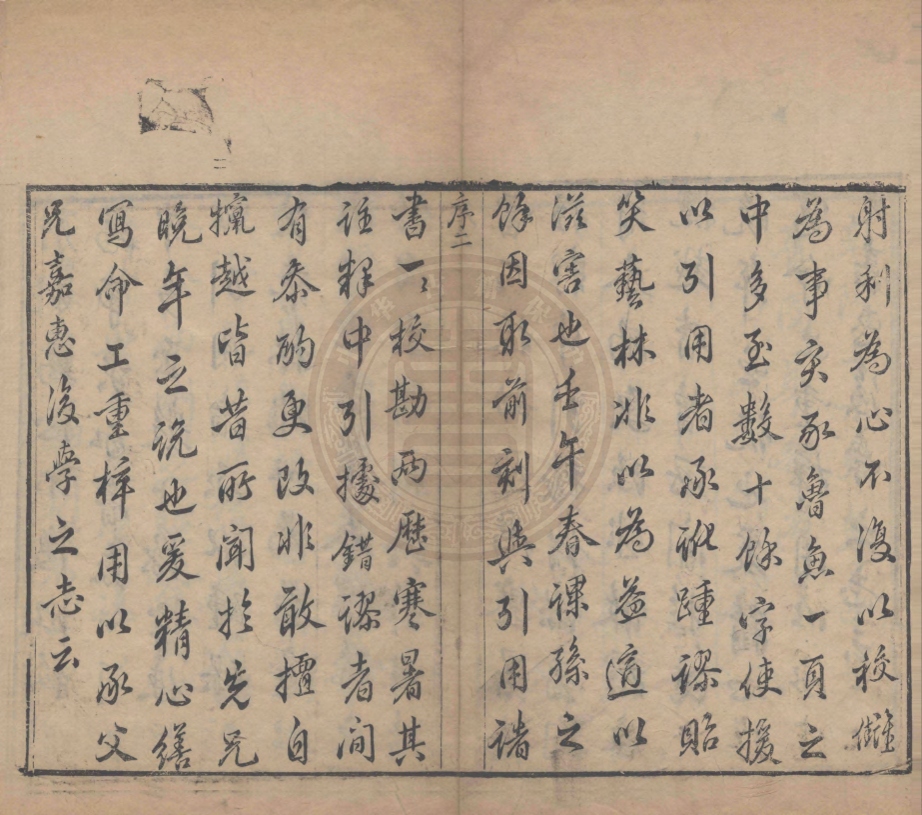 射利為心不復以校讎
為事亥豕魯魚一頁之
中多至數十餘字使援
以引用者承訛踵謬貽
笑藝林非以為益適以
滋害也壬午春課孫之
餘因取前刻與引用諸
序二
書一〻校勘兩歷寒暑其
註釋中引據錯謬者間
有忝酌更改非敢擅自
攙越皆昔所聞於先兄
晚年之說也爰精心繕
寫命工重梓用以承父
兄嘉惠後學之志云